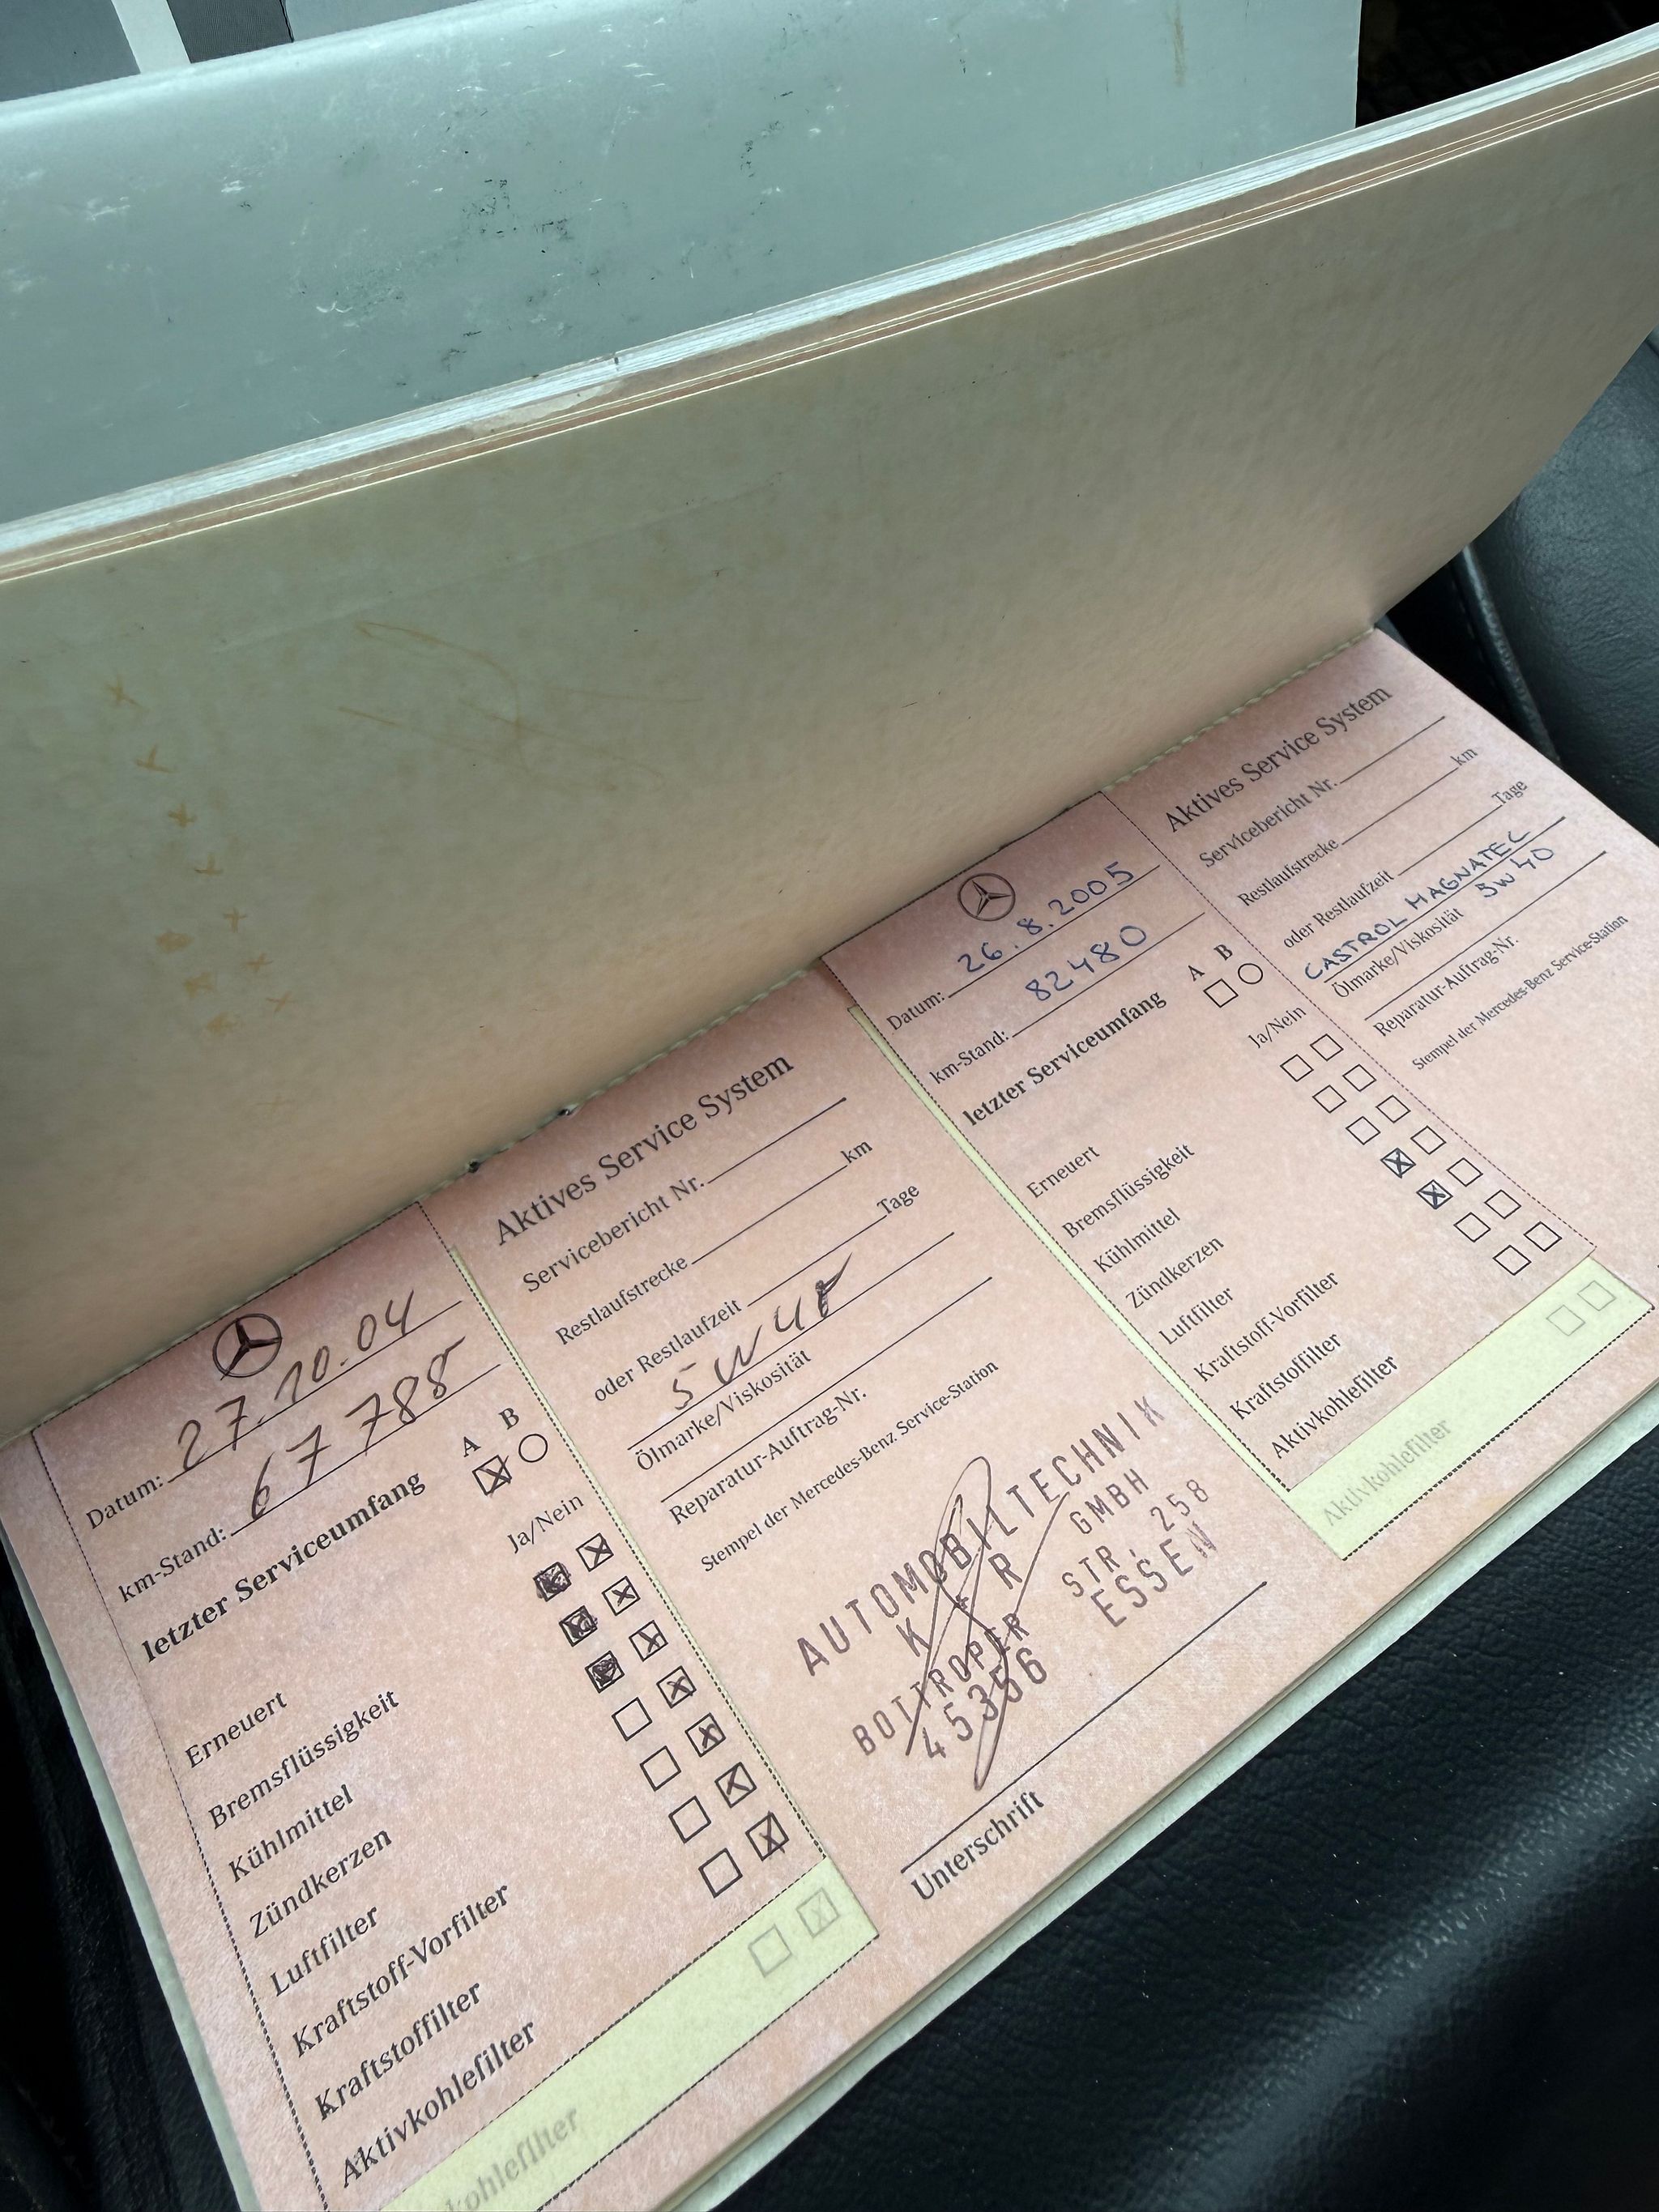 27.10.04
Datum:
67 788
km-Stand:
letzter Serviceumfang
A B
Ja/Nein
Erneuert
Bremsflüssigkeit
Kühlmittel
Zündkerzen
Luftfilter
Kraftstoff-Vorfilter
Kraftstoffilter
Aktivkohlefilter
kohlefilter
Aktives Service System
Servicebericht Nr.
Restlaufstrecke km
oder Restlaufzeit Tage
Ölmarke/Viskosität
Reparatur-Auftrag-Nr.
Stempel der Mercedes-Benz Service-Station
AUTOMOBILTECHNIK
GMBH
BOTTROPER STR. 258
45356 ESSEN
Unterschrift
26.8.2005
Datum:
82480
km-Stand:
letzter Serviceumfang
A B
Ja/Nein
Erneuert
Bremsflüssigkeit
Kühlmittel
Zündkerzen
Luftfilter
Kraftstoff-Vorfilter
Kraftstoffilter
Aktivkohlefilter
Aktivkohlefilter
Aktives Service System
Servicebericht Nr.
Restlaufstrecke km
oder Restlaufzeit Tage
CASTROL MAGNATEC
Ölmarke/Viskosität 5W40
Reparatur-Auftrag-Nr.
Stempel der Mercedes-Benz Service-Station